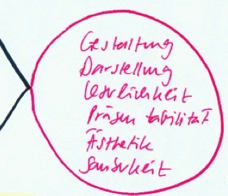 Gestaltung
Darstellung
Leserlichkeit
Präsentabilität
Ästhetik
Sauberkeit